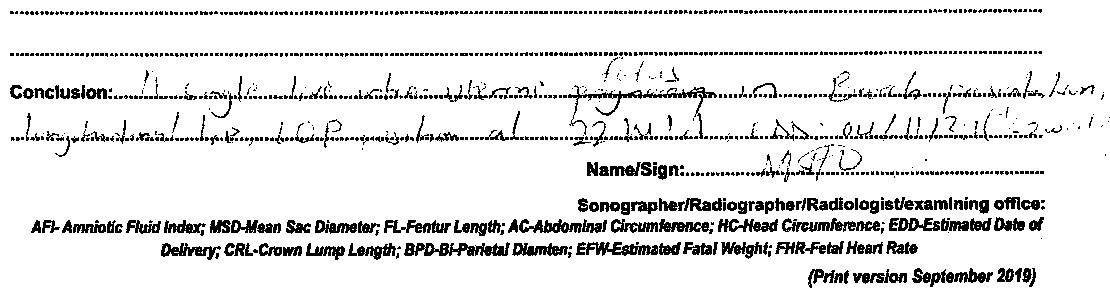 fetus
Conclusion: A single live intra uterine pregnancy in Breech presentation,
longitudinal lie, LOP position at 22W1d. EDD: 04/11/21
Name/Sign:
Sonographer/Radiographer/Radiologist/examining office:
AFI- Amniotic Fluid Index; MSD-Mean Sac Diameter; FL-Fentur Length; AC-Abdominal Circumference; HC-Head Circumference; EDD-Estimated Date of
Delivery; CRL-Crown Lump Length; BPD-Bi-Parietal Diamten; EFW-Estimated Fatal Weight; FHR-Fetal Heart Rate
(Print version September 2019)